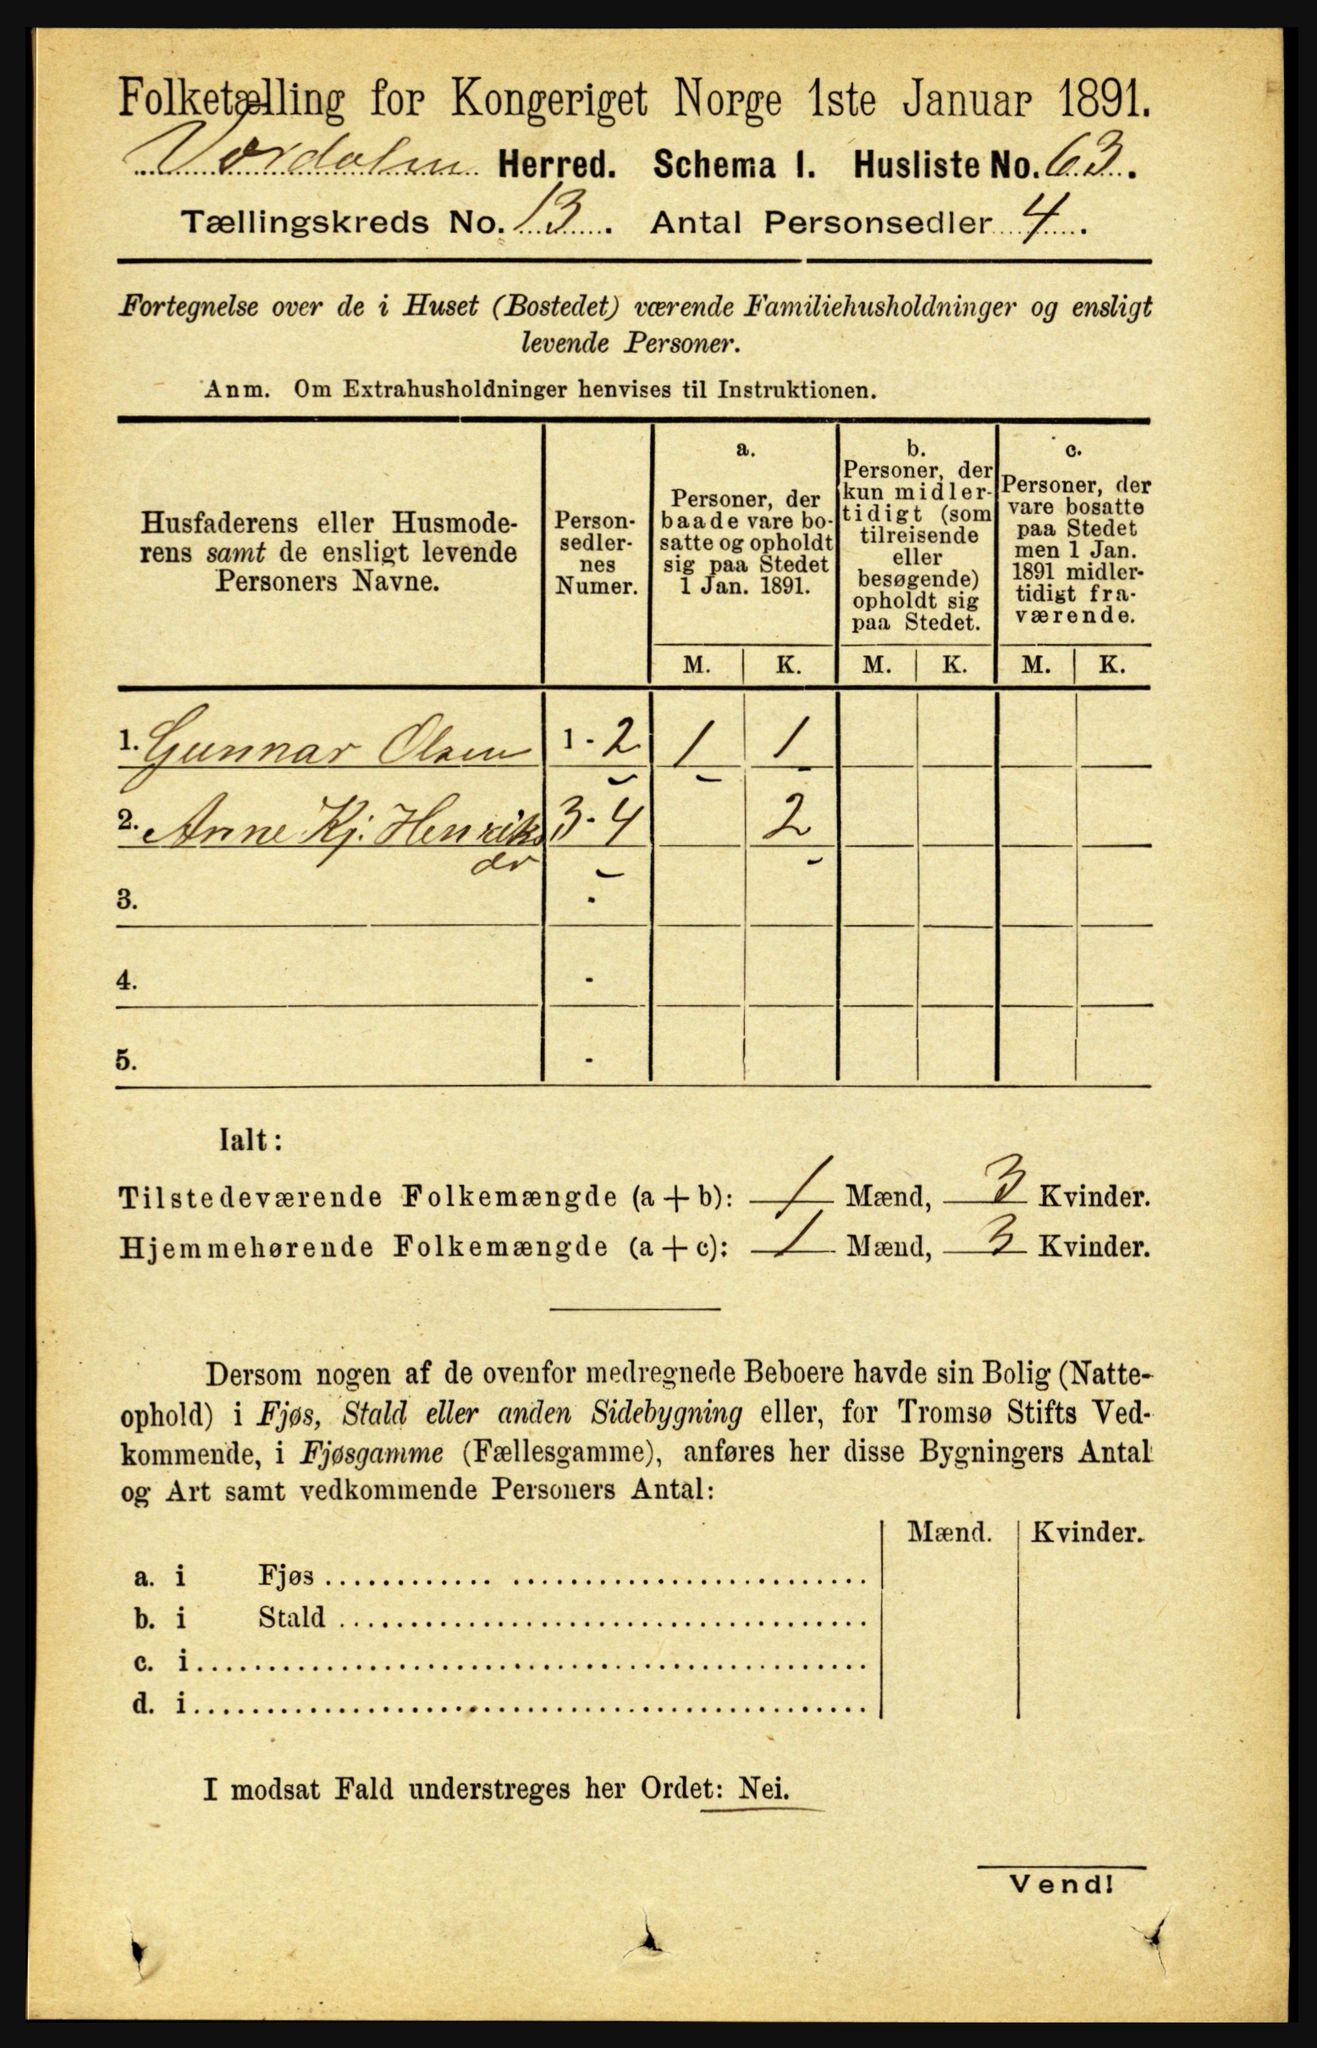 Folketælling for Kongeriget Norge 1ste Januar 1891.
Værdalen Herred. Schema 1. Husliste No. 63.
Tællingskreds No. 13. Antal Personsedler 4.
Fortegnelse over de i Huset (Bostedet) værende Familiehusholdninger og ensligt
levende Personer.
Anm. Om Extrahusholdninger henvises til Instruktionen.
Husfaderens eller Husmode-
rens samt de ensligt levende
Personers Navne.
Person-
sedler-
nes
Numer.
a.
Personer, der
baade vare bo-
satte og opholdt
sig paa Stedet
1 Jan. 1891.
b.
Personer, der
kun midler-
tidigt (som
tilreisende
eller
besøgende)
opholdt sig
paa Stedet.
c.
Personer, der
vare bosatte
paa Stedet
men 1 Jan.
1891 midler-
tidigt fra-
værende.
M. K. M. K. M. K.
1. Gunnar Olsen 1 - 2 1 1
2. Anne Kj. Henriks 3 - 4 2
dr
3. -
4. -
5. -
Ialt:
Tilstedeværende Folkemængde (a + b): 1 Mænd, 3 Kvinder.
Hjemmehørende Folkemængde (a + c): 1 Mænd, 3 Kvinder.
Dersom nogen af de ovenfor medregnede Beboere havde sin Bolig (Natte-
ophold) i Fjøs, Stald eller anden Sidebygning eller, for Tromsø Stifts Ved-
kommende, i Fjøsgamme (Fællesgamme), anføres her disse Bygningers Antal
og Art samt vedkommende Personers Antal:
Mænd. Kvinder.
a. i Fjøs
b. i Stald
c. i
d. i
I modsat Fald understreges her Ordet: Nei.
Vend!